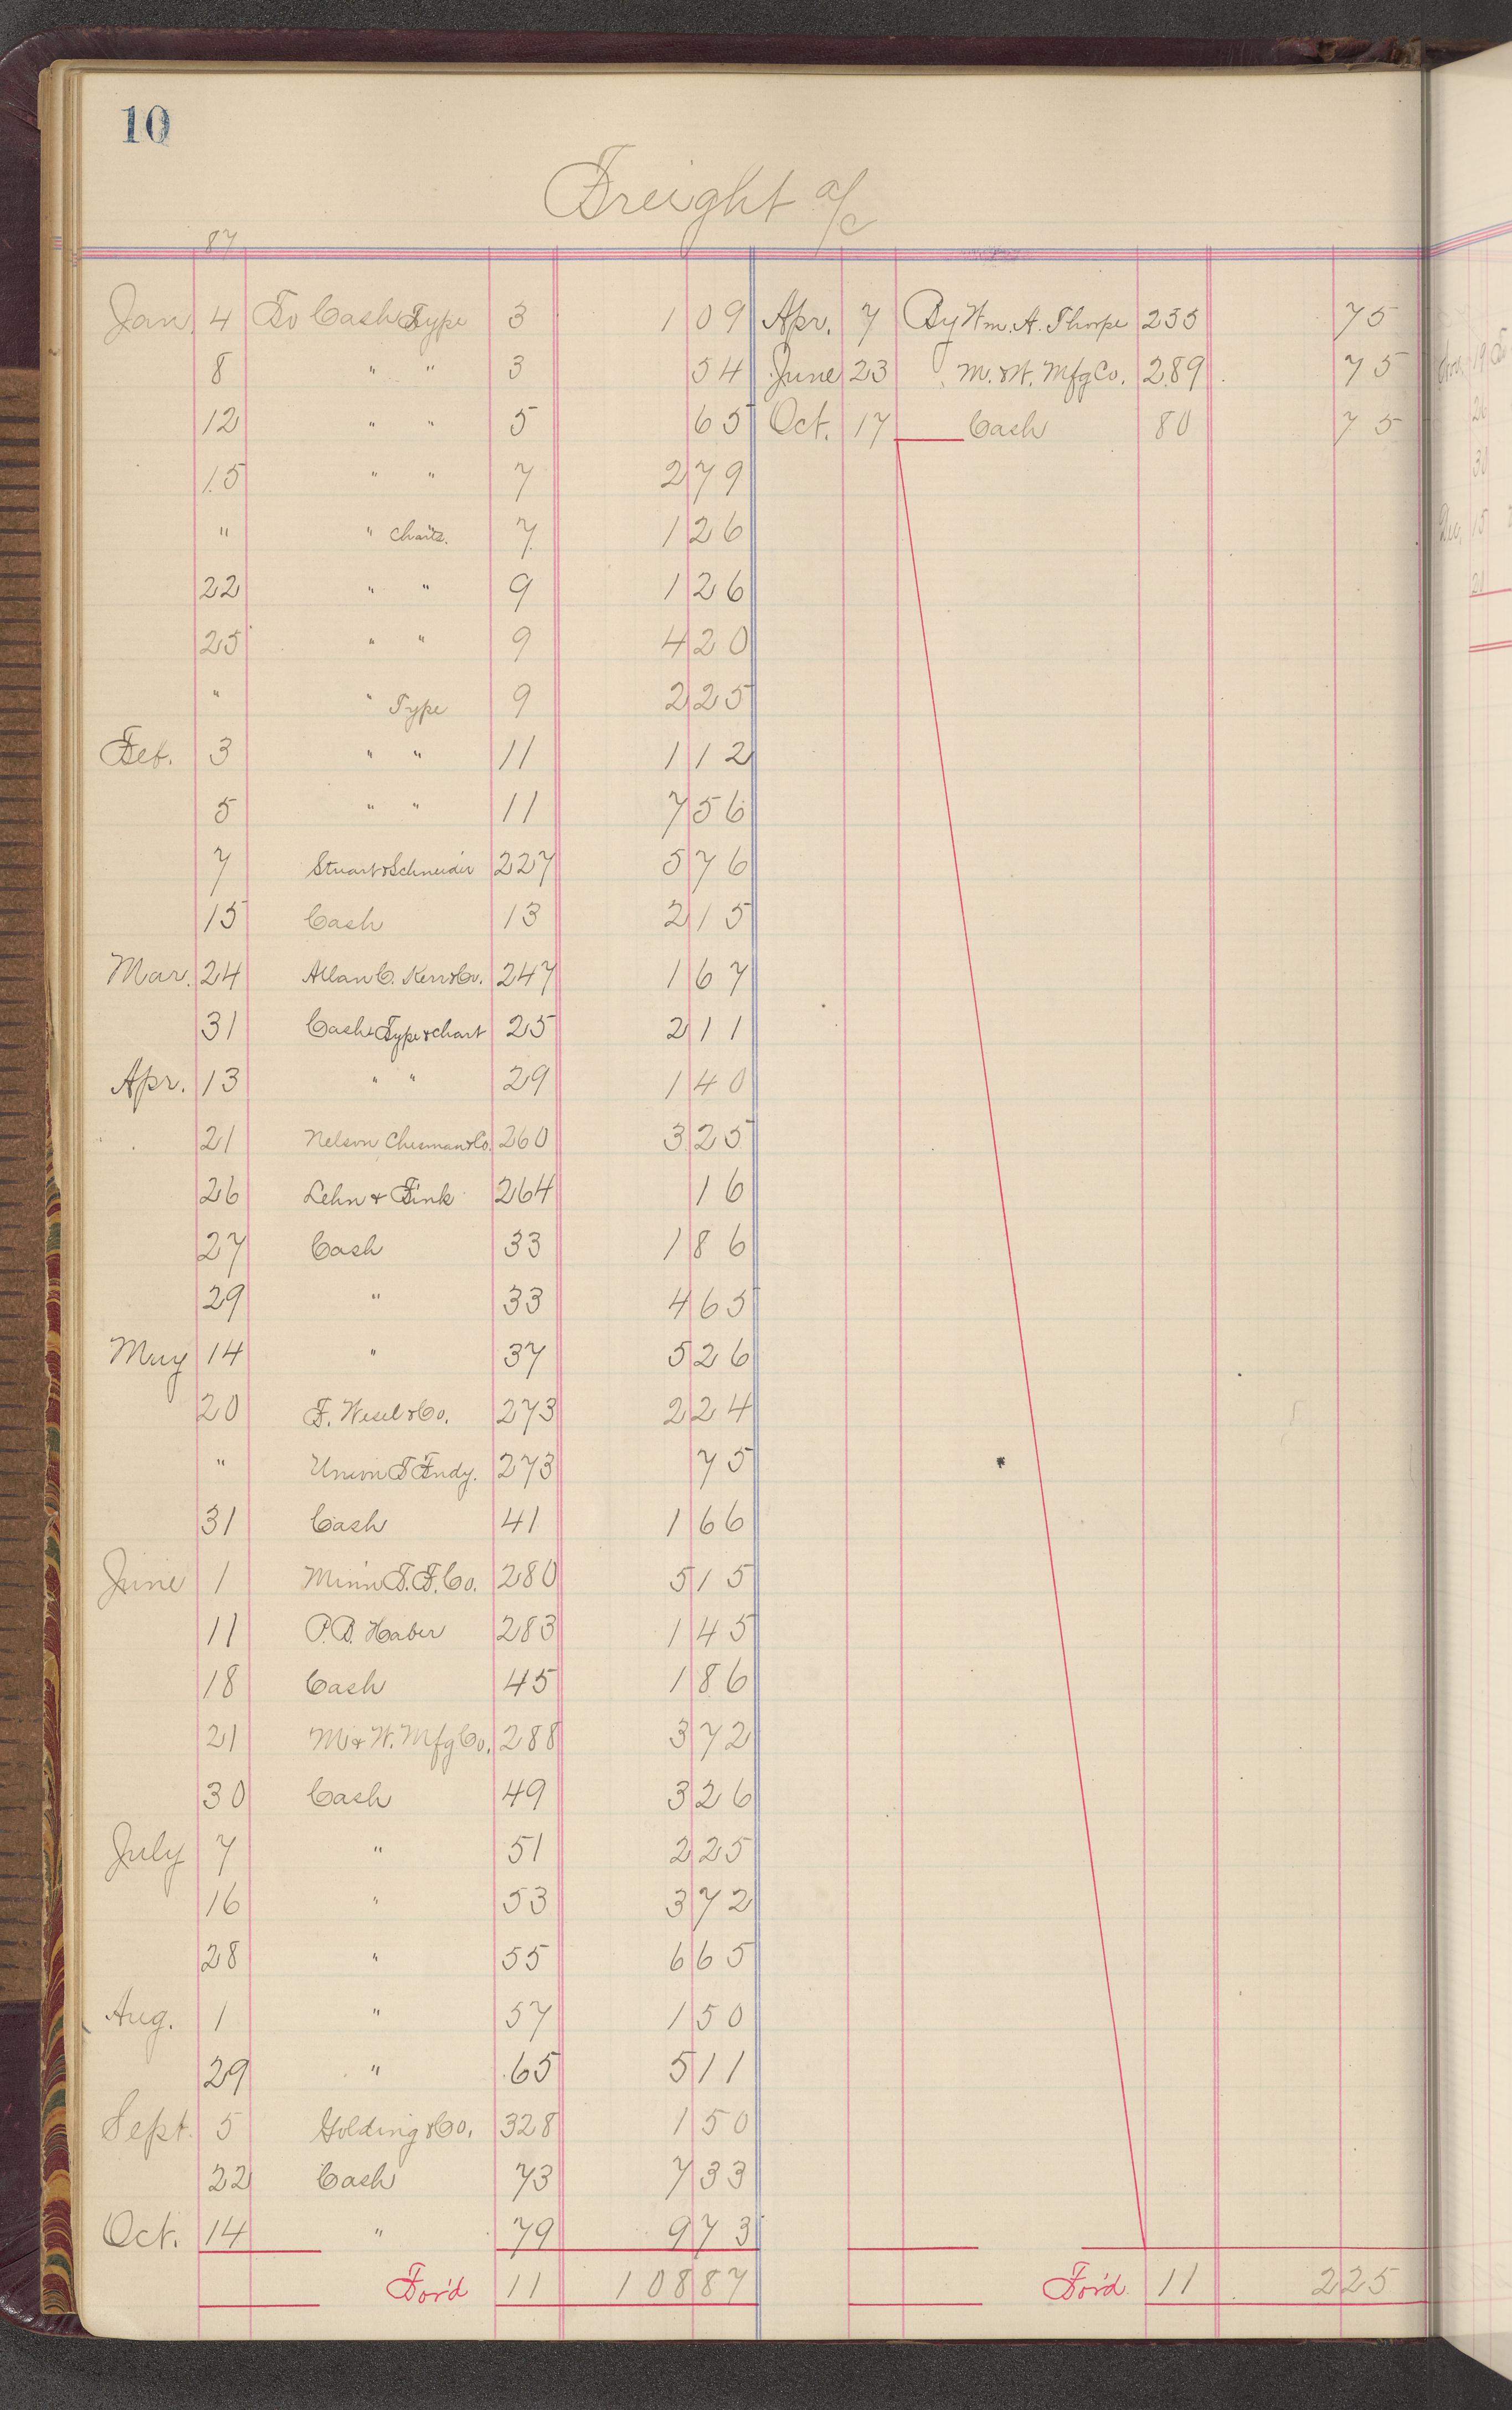 10
Freight a/c
87
Jan. 4 To Cash Type 3 1 09 Apr. 7 By Wm. A. Thorpe 255 75
8 " " 3 54 June 23 M. & W. Mfg Co. 289 75
12 " " 5 65 Oct. 17 Cash 80 75
15 " " 7 2 79
" " Chaits. 7 1 26
22 " " 9 1 26
25 " " 9 4 20
" " Type 9 2 25
Feb. 3 " " 11 1 12
5 " " 11 7 56
7 Stuart & Schneider 227 5 76
15 Cash 13 2 15
Mar. 24 Allan C. Kerr & Co. 247 1 67
31 Cash Type & Chart 25 2 11
Apr. 13 " " 29 1 40
21 Nelson Chesman & Co. 260 3 25
26 Lehn & Fink 264 16
27 Cash 33 1 86
29 " 33 4 65
May 14 " 37 5 26
20 F. Wesel & Co. 273 2 24
" Union T Fndy. 273 75
31 Cash 41 1 66
June 1 Minn T. F. Co. 280 5 15
11 P. B. Haber 283 1 45
18 Cash 45 1 86
21 M & W. Mfg Co. 288 3 72
30 Cash 49 3 26
July 7 " 51 2 25
16 " 53 3 72
28 " 55 6 65
Aug. 1 " 57 1 50
29 " 65 5 11
Sept. 5 Golding & Co. 328 1 50
22 Cash 73 7 33
Oct. 14 " 79 9 73
For'd 11 108 87 For'd 11 2 25